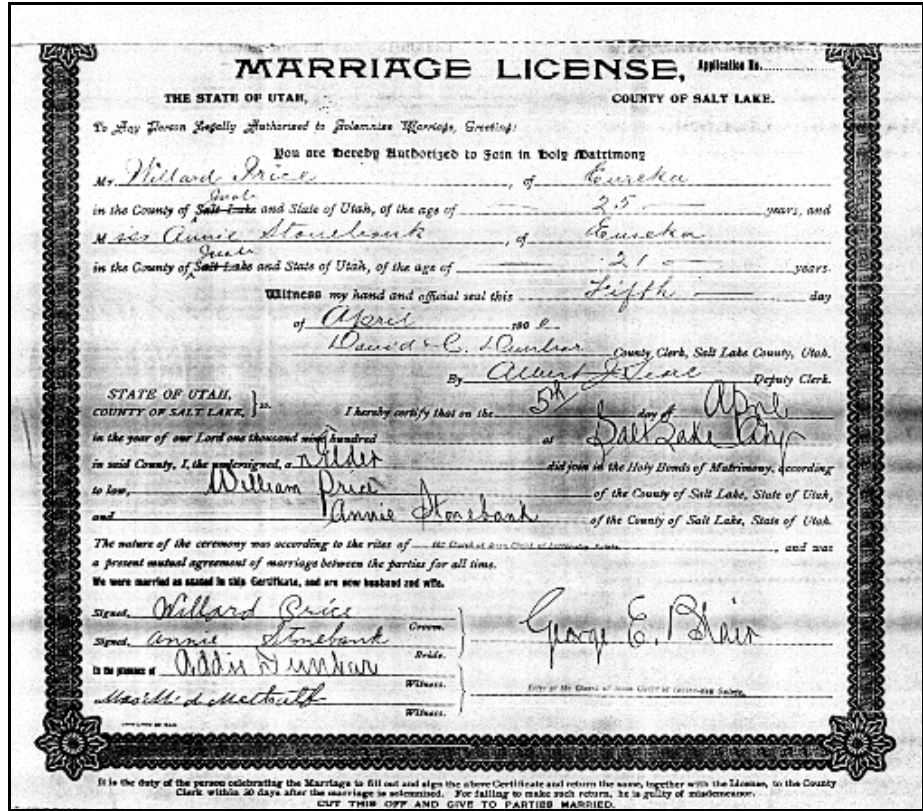 MARRIAGE LICENSE, Application No.
THE STATE OF UTAH, COUNTY OF SALT LAKE.
To Any Person Legally Authorized to Solemnize Marriage, Greeting:
You are Hereby Authorized to Join in Holy Matrimony
Mr. Willard Price, of Eureka
Juab
in the County of Salt Lake and State of Utah, of the age of 25 years, and
Miss Annie Stonebank, of Eureka
Juab
in the County of Salt Lake and State of Utah, of the age of 21 years.
Witness my hand and official seal this Fifth day
of April 190
David C. Dunbar County Clerk, Salt Lake County, Utah.
By Albert J. Deputy Clerk.
STATE OF UTAH,
COUNTY OF SALT LAKE, } ss. I hereby certify that on the 5th day of April
in the year of our Lord one thousand nine hundred at Salt Lake City
in said County, I, the undersigned, an Elder did join in the Holy Bonds of Matrimony, according
to law, William Price of the County of Salt Lake, State of Utah,
and Annie Stonebank of the County of Salt Lake, State of Utah.
The nature of the ceremony was according to the rites of the Church of Jesus Christ of Latter-day Saints, and was
a present mutual agreement of marriage between the parties for all time.
We were married as stated in this Certificate, and are now husband and wife.
Signed, Willard Price Groom.
Signed, Annie Stonebank Bride.
George E. Blair
In the presence of Addie Dunbar Witness.
Elder of the Church of Jesus Christ of Latter-day Saints.
Witness.
It is the duty of the person celebrating the Marriage to fill out and sign the above Certificate and return the same, together with the License, to the County
Clerk within 30 days after the marriage is solemnized. For failing to make such return, he is guilty of misdemeanor.
CUT THIS OFF AND GIVE TO PARTIES MARRIED.